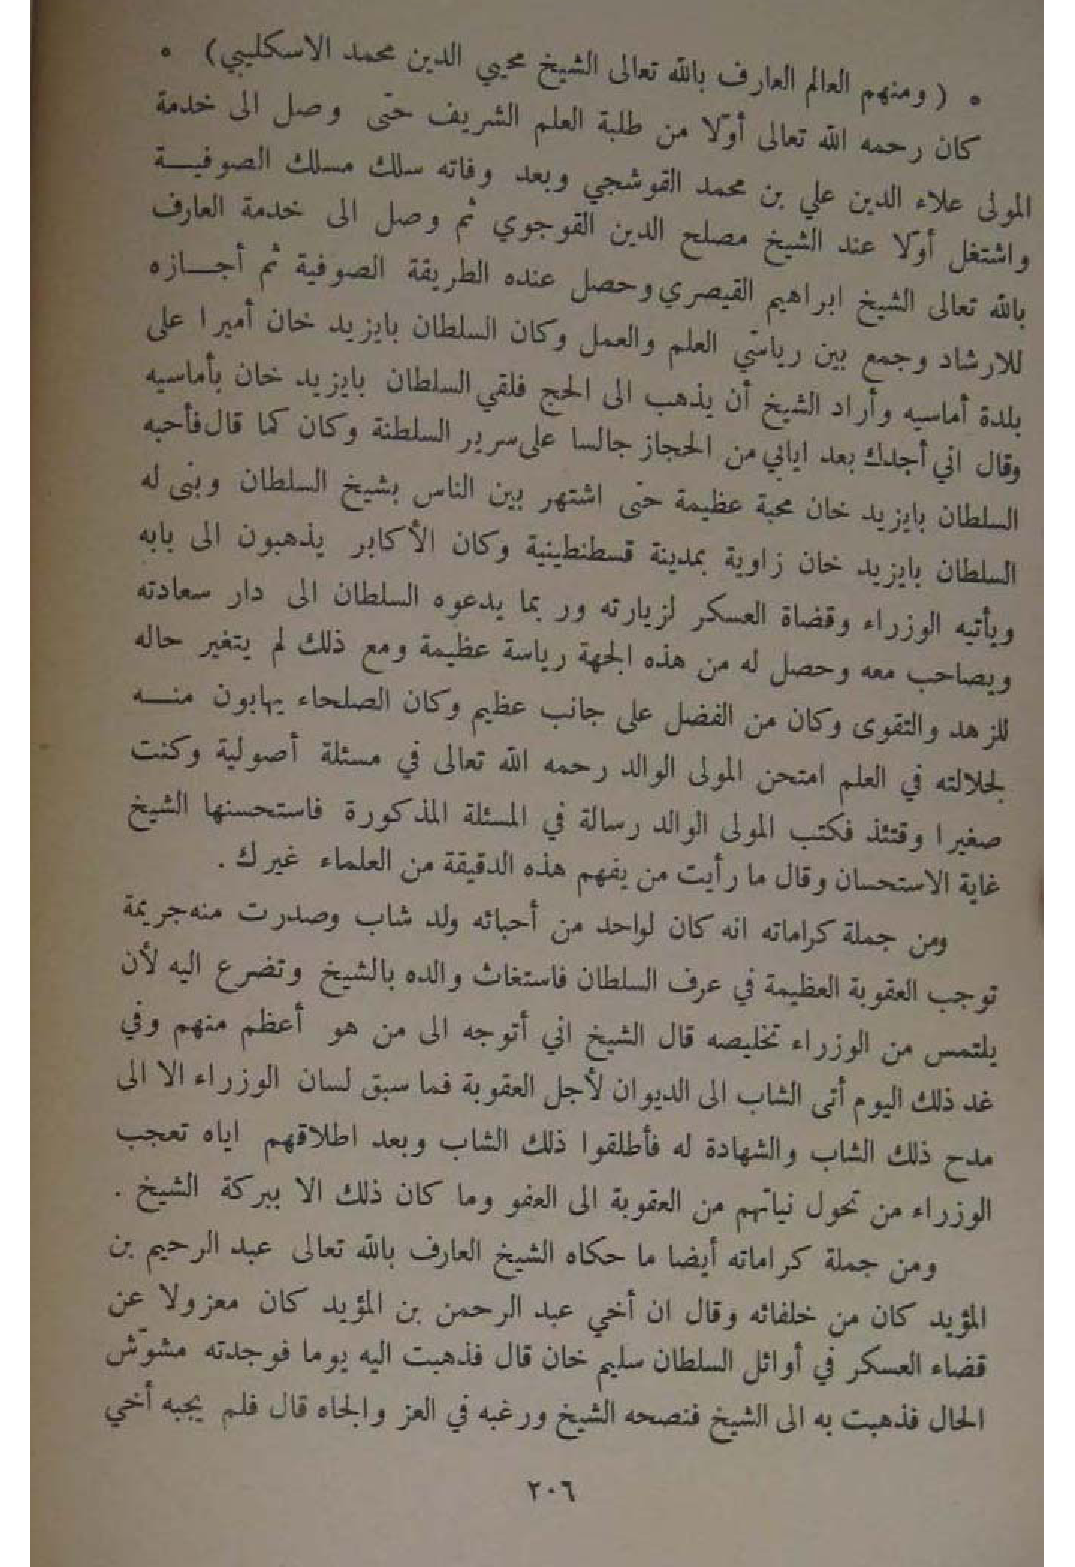 • ( ومنهم العالم العارف بالله تعالى الشيخ محيي الدين محمد الاسكليبي) •
كان رحمه الله تعالى أوّلا من طلبة العلم الشريف حتى وصل الى خدمة
المولى علاء الدين علي بن محمد القوشجي وبعد وفاته سلك مسلك الصوفية
واشتغل أوّلا عند الشيخ مصلح الدين القوجوي ثم وصل الى خدمة العارف
بالله تعالى الشيخ ابراهيم القيصري وحصل عنده الطريقة الصوفية ثم أجازه
للارشاد وجمع بين رياستي العلم والعمل وكان السلطان بايزيد خان أميرا على
بلدة أماسيه وأراد الشيخ أن يذهب الى الحج فلقي السلطان بايزيد خان بأماسيه
وقال اني أجدك بعد ايابي من الحجاز جالسا على سرير السلطنة وكان كما قال فأحبه
السلطان بايزيد خان محبة عظيمة حتى اشتهر بين الناس بشيخ السلطان وبنى له
السلطان بايزيد خان زاوية بمدينة قسطنطينية وكان الأكابر يذهبون الى بابه
ويأتيه الوزراء وقضاة العسكر لزيارته وربما يدعوه السلطان الى دار سعادته
ويصاحب معه وحصل له من هذه الجهة رياسة عظيمة ومع ذلك لم يتغير حاله
للزهد والتقوى وكان من الفضل على جانب عظيم وكان الصلحاء يهابون منه
لجلالته في العلم امتحن المولى الوالد رحمه الله تعالى في مسئلة أصولية وكنت
صغيرا وقتئذ فكتب المولى الوالد رسالة في المسئلة المذكورة فاستحسنها الشيخ
غاية الاستحسان وقال ما رأيت من يفهم هذه الدقيقة من العلماء غيرك .
ومن جملة كراماته انه كان لواحد من أحبائه ولد شاب وصدرت منه جريمة
توجب العقوبة العظيمة في عرف السلطان فاستغاث والده بالشيخ وتضرع اليه لأن
يلتمس من الوزراء تخليصه قال الشيخ اني أتوجه الى من هو أعظم منهم وفي
غد ذلك اليوم أتى الشاب الى الديوان لأجل العقوبة فما سبق لسان الوزراء الا الى
مدح ذلك الشاب والشهادة له فأطلقوا ذلك الشاب وبعد اطلاقهم اياه تعجب
الوزراء من تحول نياتهم من العقوبة الى العفو وما كان ذلك الا ببركة الشيخ .
ومن جملة كراماته أيضا ما حكاه الشيخ العارف بالله تعالى عبد الرحيم بن
المؤيد كان من خلفائه وقال ان أخي عبد الرحمن بن المؤيد كان معزولا عن
قضاء العسكر في أوائل السلطان سليم خان قال فذهبت اليه يوما فوجدته مشوّش
الحال فذهبت به الى الشيخ فنصحه الشيخ ورغبه في العز والجاه قال فلم يجبه أخي
٢٠٦